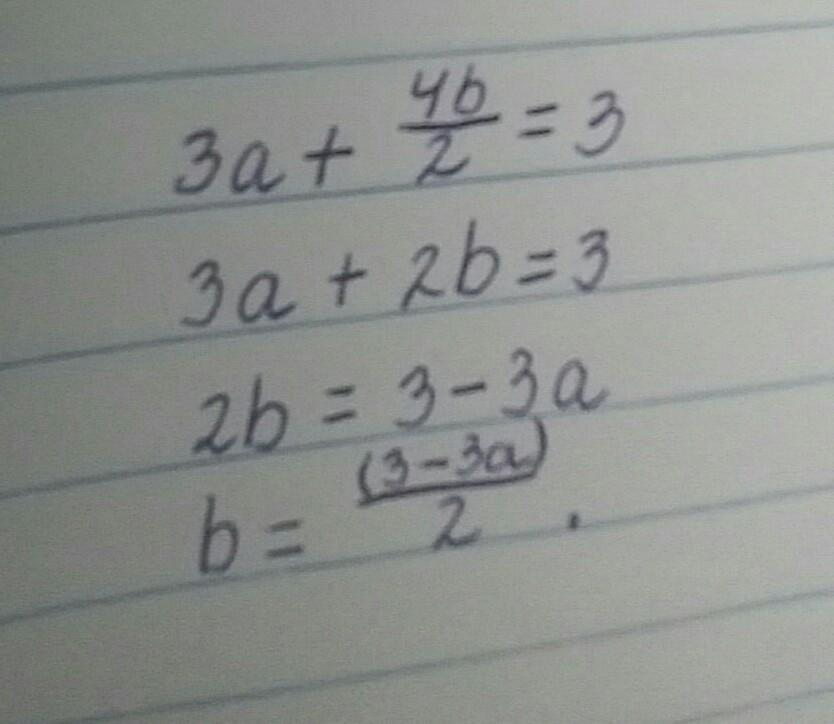 3a + 4b/2 = 3
3a + 2b = 3
2b = 3 - 3a
b = (3 - 3a)/2 .